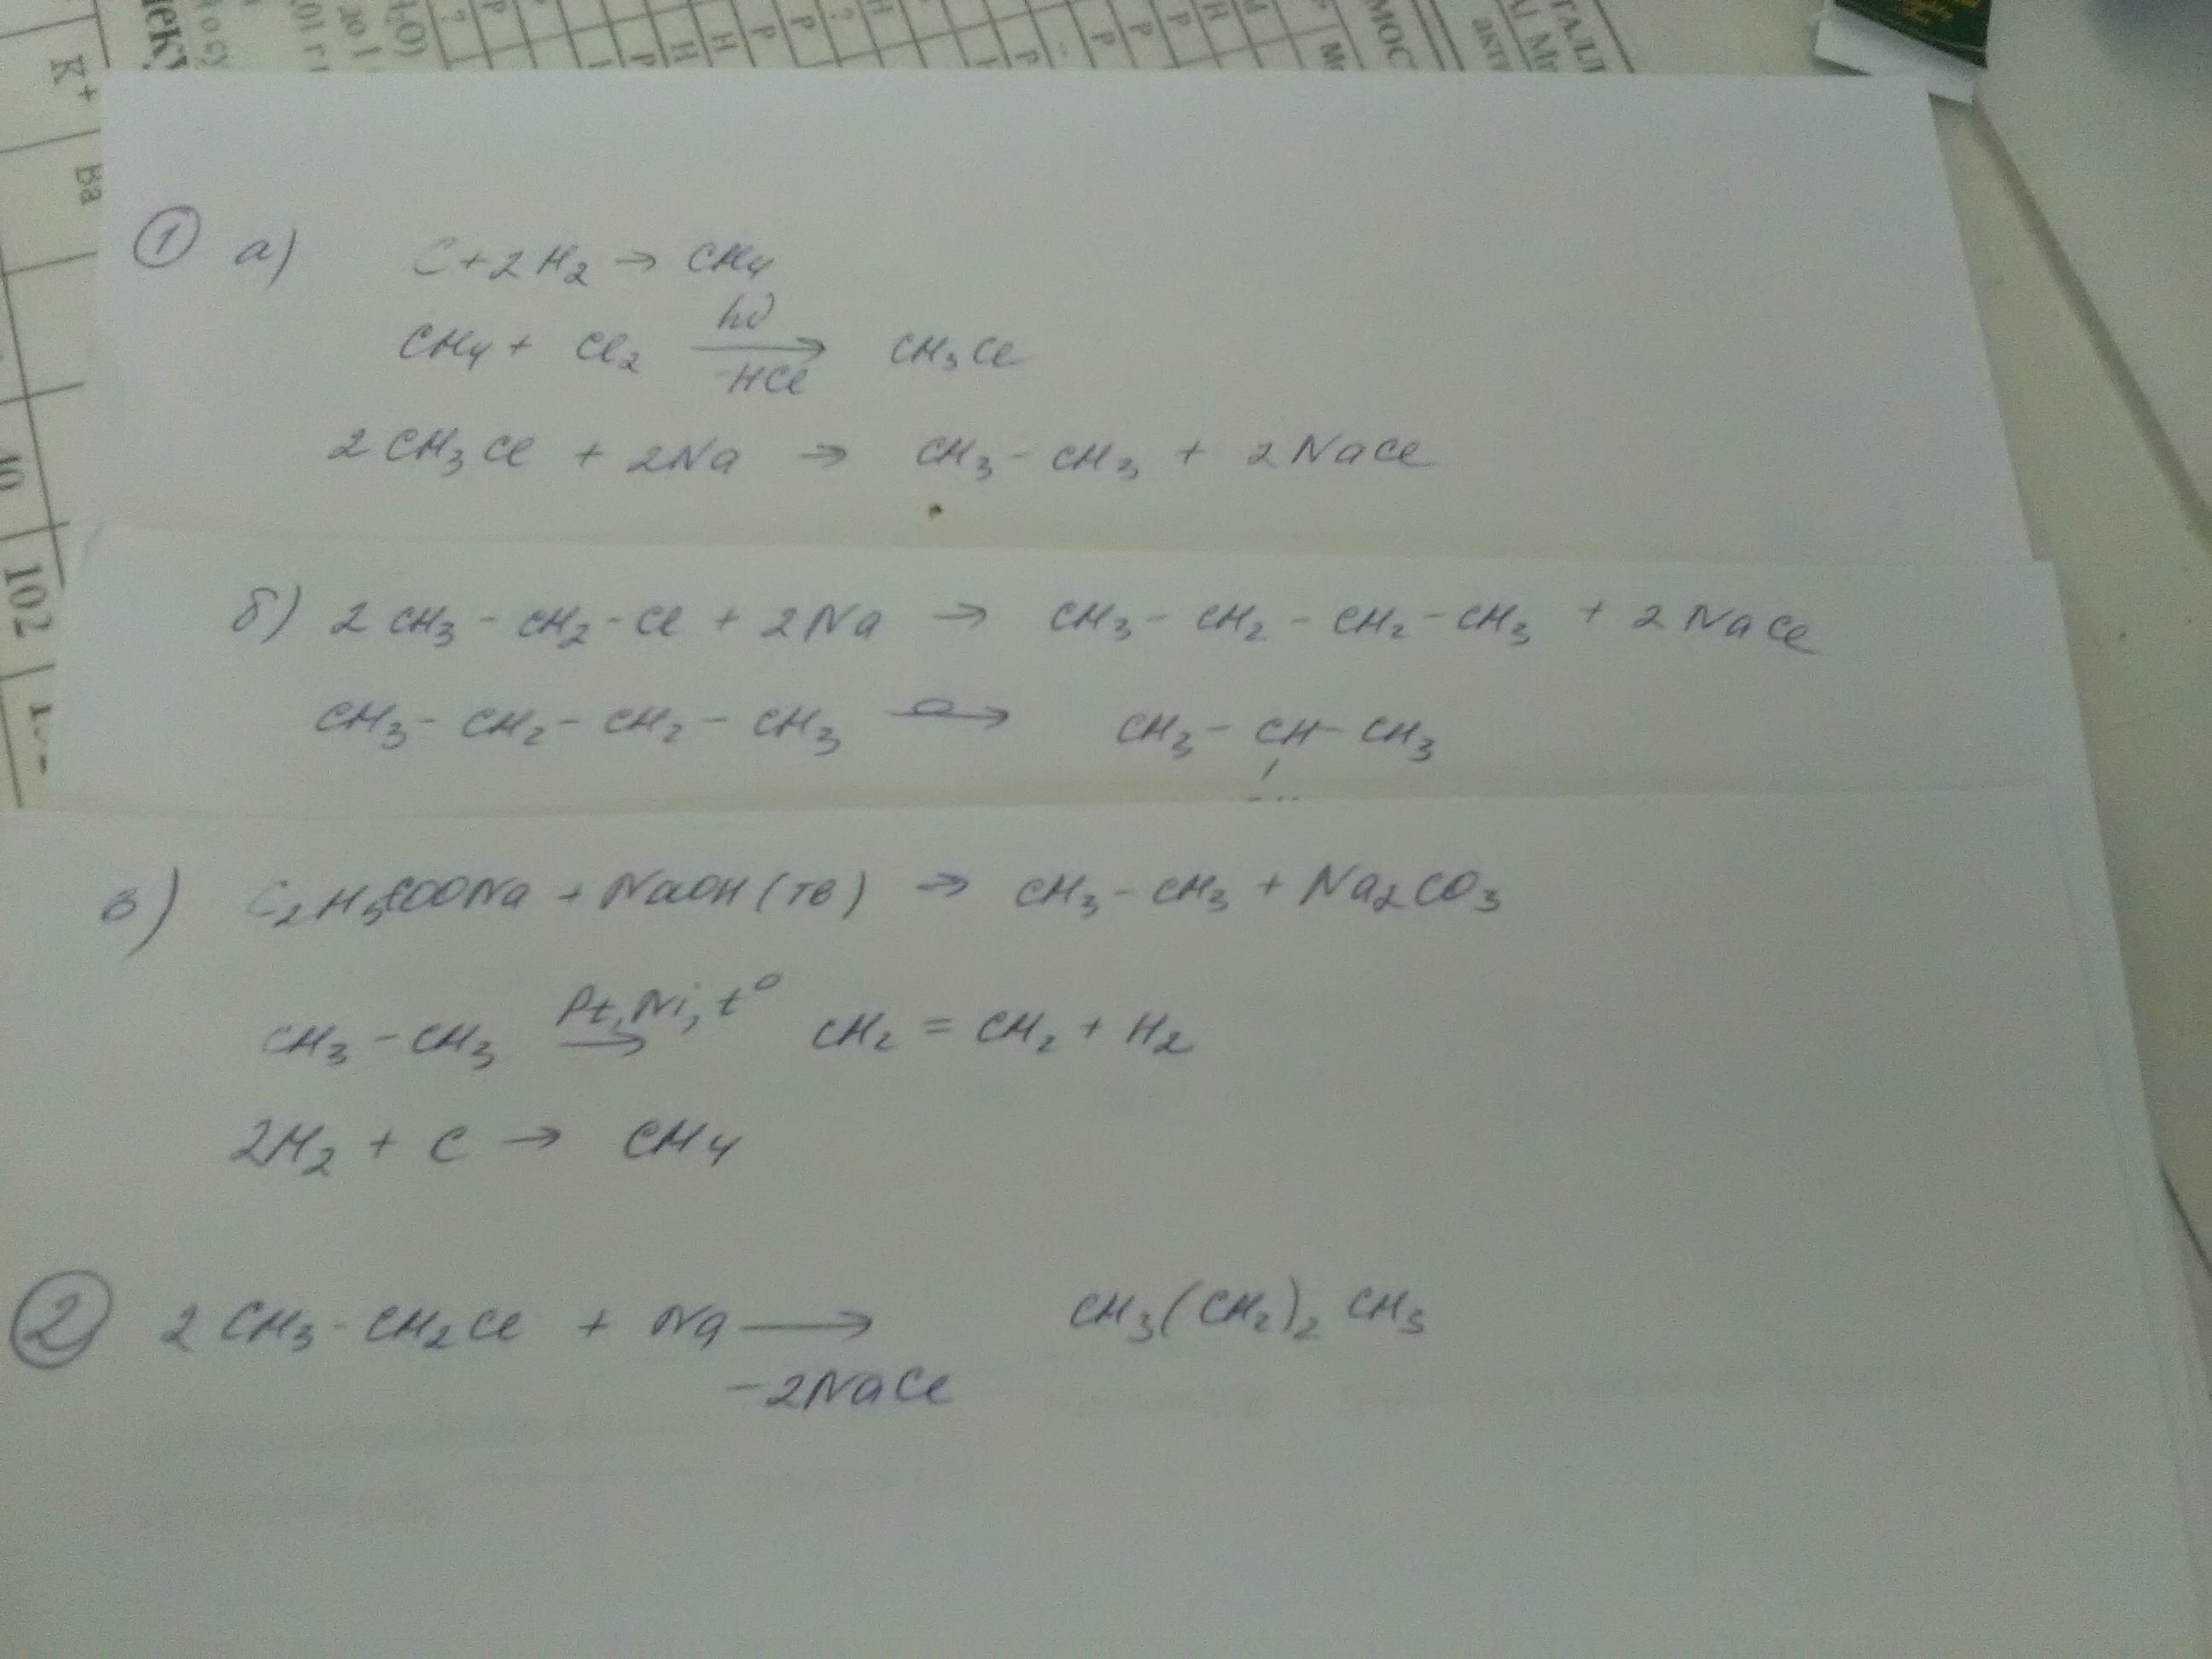 ① а) C + 2H₂ → CH₄
CH₄ + Cl₂ hν → -HCl CH₃Cl
2CH₃Cl + 2Na → CH₃ - CH₃ + 2NaCl
б) 2CH₃ - CH₂ - Cl + 2Na → CH₃ - CH₂ - CH₂ - CH₃ + 2NaCl
CH₃ - CH₂ - CH₂ - CH₃ → CH₃ - CH - CH₃
в) C₂H₅COONa + NaOH (тв) → CH₃ - CH₃ + Na₂CO₃
CH₃ - CH₃ Pt, Ni, t° → CH₂ = CH₂ + H₂
2H₂ + C → CH₄
② 2CH₃ - CH₂Cl + Na → CH₃(CH₂)₂CH₃
-2NaCl
K⁺
Ba
102